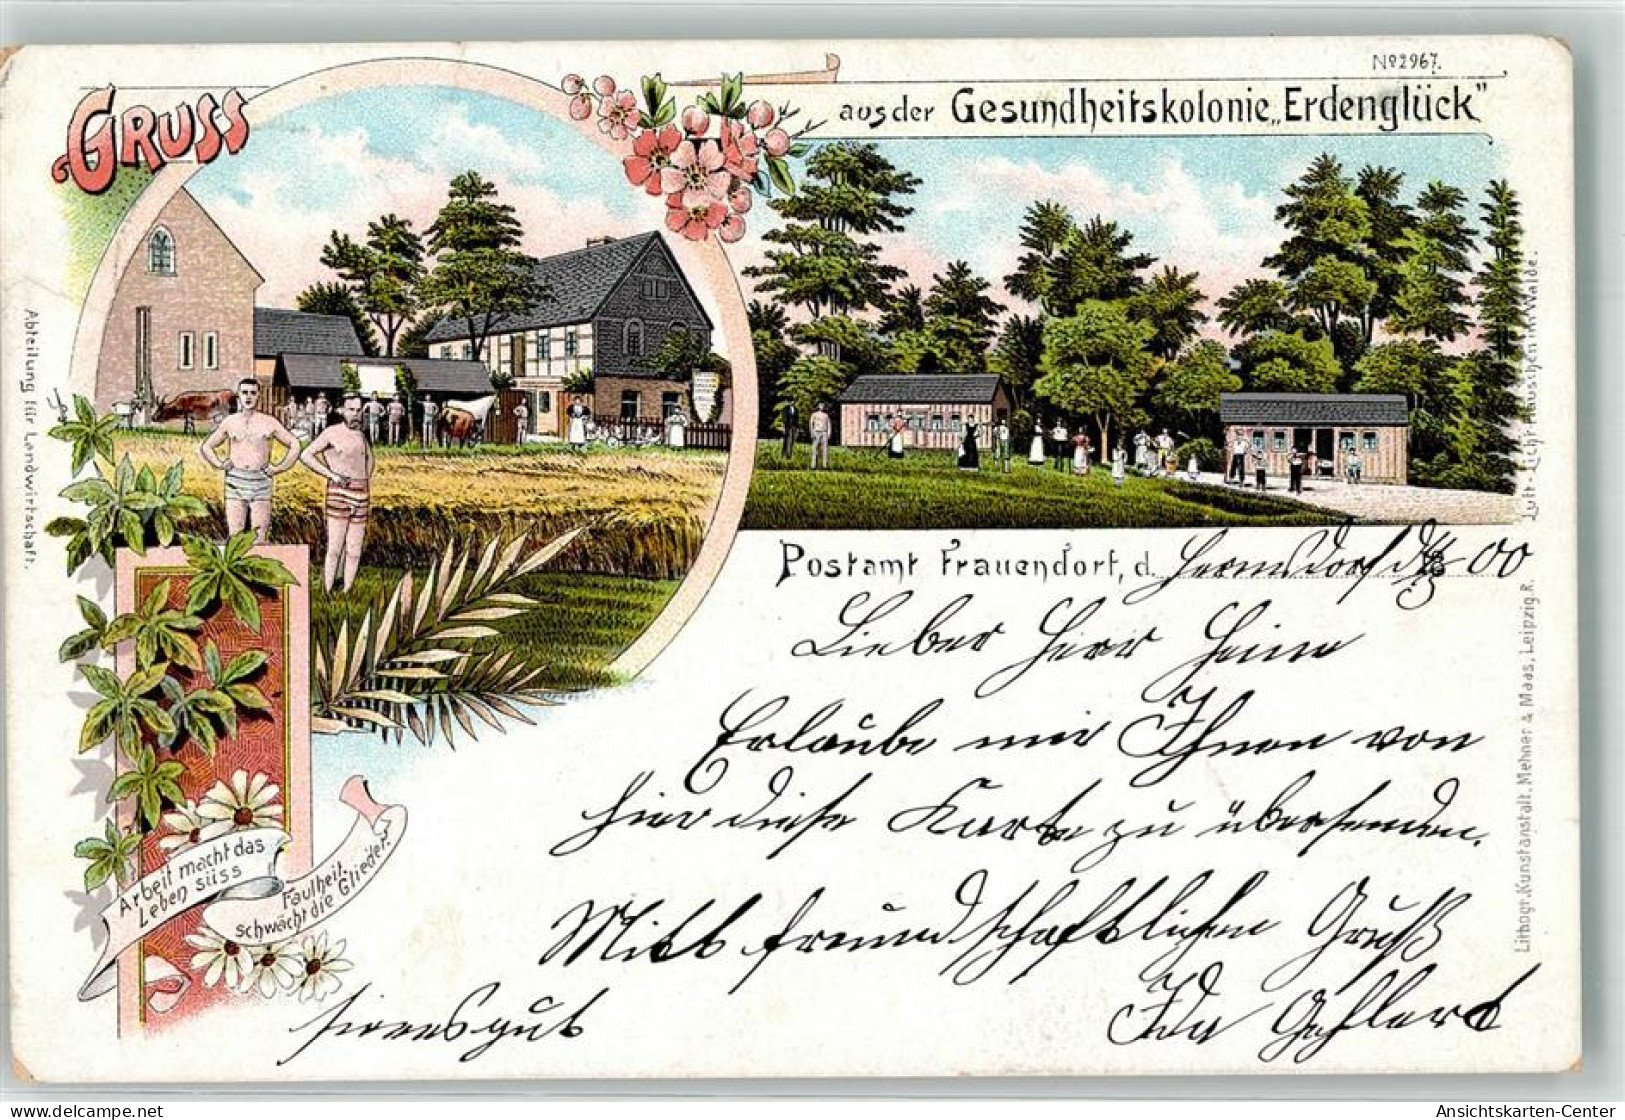 No 2967.
GRUSS
aus der Gesundheitskolonie „Erdenglück"
Abteilung für Landwirtschaft.
Luft-Licht-Häuschen im Walde.
Postamt Frauendorf, d. Hermsdorf d. 00
Lieber Herr Heine
Erlaube mir Ihnen von
hier diese Karte zu übersenden.
Mitt freundschaftlichen Gruß
Ida Gehlert
Arbeit macht das
Leben süss
Faulheit
schwächt die Glieder.
Lithogr. Kunstanstalt, Mehner & Maas, Leipzig R.
Ansichtskarten-Center